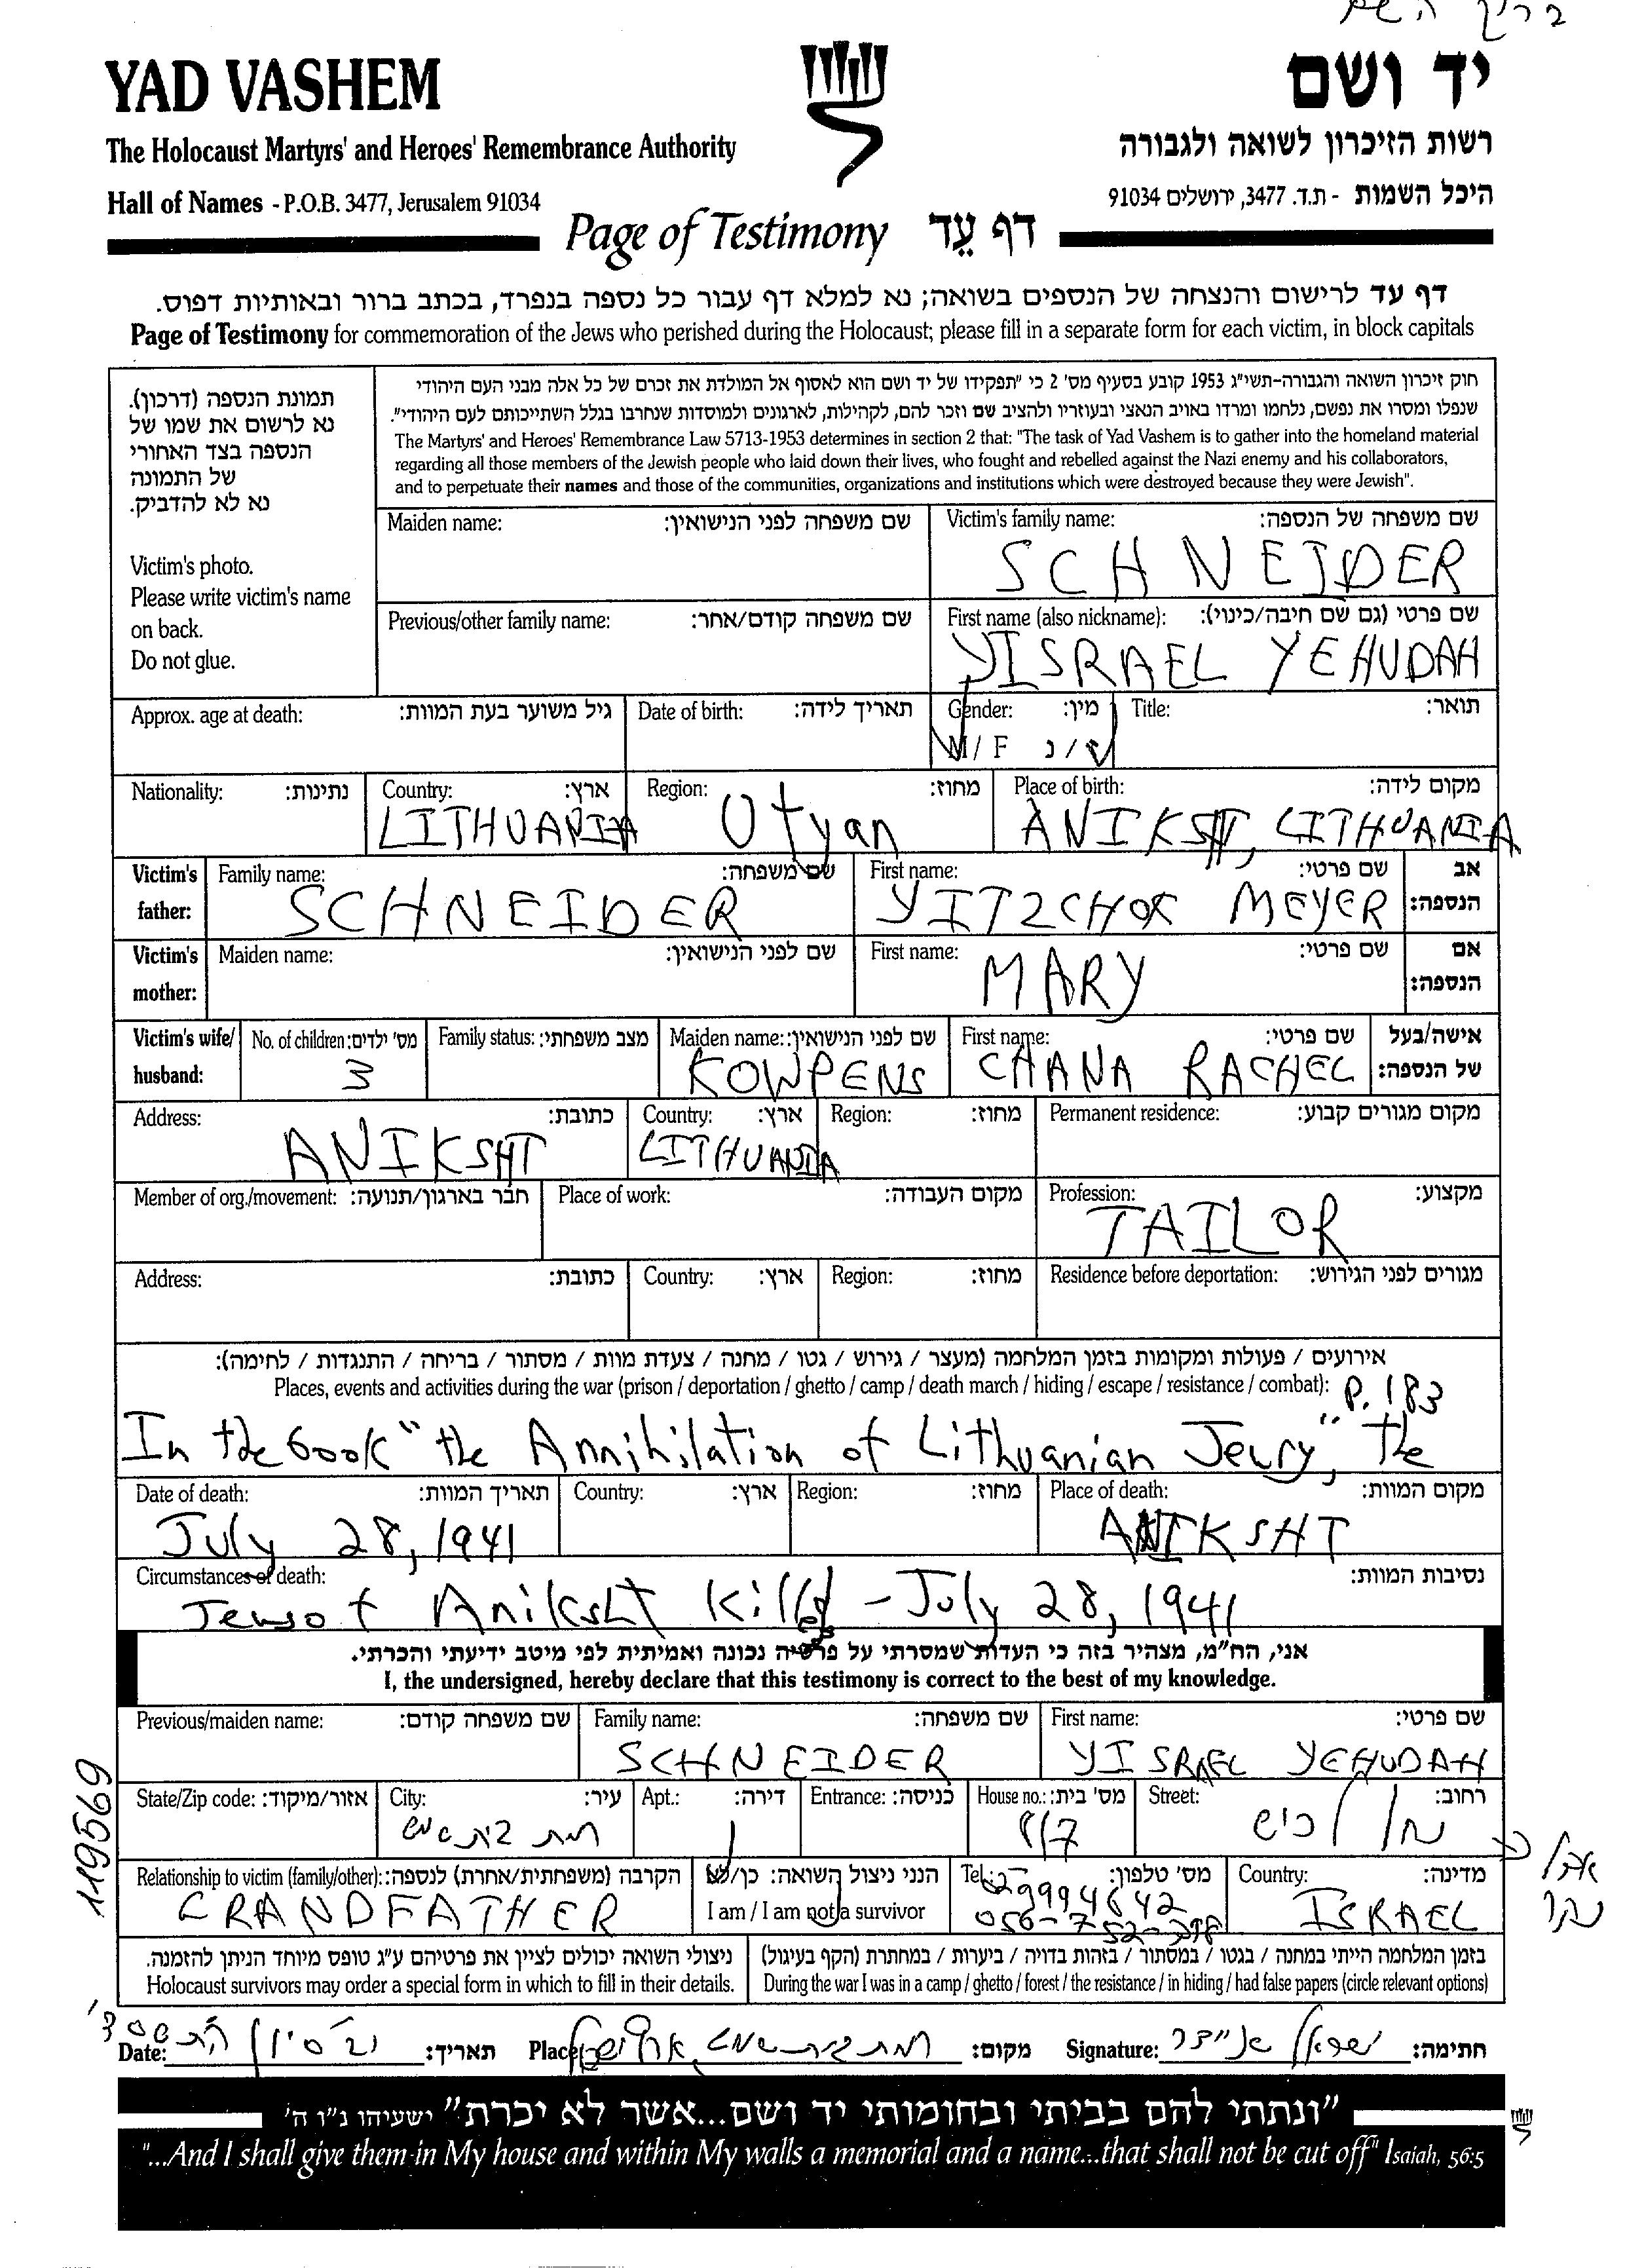 ברוך השם
YAD VASHEM
יד ושם
The Holocaust Martyrs' and Heroes' Remembrance Authority
רשות הזיכרון לשואה ולגבורה
Hall of Names - P.O.B. 3477, Jerusalem 91034
היכל השמות - ת.ד. 3477, ירושלים 91034
Page of Testimony דף עֵד
דף עד לרישום והנצחה של הנספים בשואה; נא למלא דף עבור כל נספה בנפרד, בכתב ברור ובאותיות דפוס.
Page of Testimony for commemoration of the Jews who perished during the Holocaust; please fill in a separate form for each victim, in block capitals
תמונת הנספה (דרכון).
נא לרשום את שמו של
הנספה בצד האחורי
של התמונה
נא לא להדביק.
Victim's photo.
Please write victim's name
on back.
Do not glue.
חוק זיכרון השואה והגבורה-תשי"ג 1953 קובע בסעיף מס' 2 כי "תפקידו של יד ושם הוא לאסוף אל המולדת את זכרם של כל אלה מבני העם היהודי
שנפלו ומסרו את נפשם, נלחמו ומרדו באויב הנאצי ובעוזריו ולהציב שם וזכר להם, לקהילות, לארגונים ולמוסדות שנחרבו בגלל השתייכותם לעם היהודי".
The Martyrs' and Heroes' Remembrance Law 5713-1953 determines in section 2 that: "The task of Yad Vashem is to gather into the homeland material
regarding all those members of the Jewish people who laid down their lives, who fought and rebelled against the Nazi enemy and his collaborators,
and to perpetuate their names and those of the communities, organizations and institutions which were destroyed because they were Jewish".
Maiden name: שם משפחה לפני הנישואין: Victim's family name: שם משפחה של הנספה:
SCHNEIDER
Previous/other family name: שם משפחה קודם/אחר: First name (also nickname): שם פרטי (גם שם חיבה/כינוי):
YISRAEL YEHUDAH
Approx. age at death: גיל משוער בעת המוות: Date of birth: תאריך לידה: Gender: מין: Title: תואר:
M / F ז / נ
Nationality: נתינות: Country: ארץ: Region: מחוז: Place of birth: מקום לידה:
LITHUANIA Utyan ANIKSHT, LITHUANIA
Victim's father: Family name: שם משפחה: First name: שם פרטי: אב הנספה:
SCHNEIDER YITZCHOK MEYER
Victim's mother: Maiden name: שם לפני הנישואין: First name: שם פרטי: אם הנספה:
MARY
Victim's wife/husband: No. of children: מס' ילדים: Family status: מצב משפחתי: Maiden name: שם לפני הנישואין: First name: שם פרטי: אישה/בעל של הנספה:
3 KOWPENS CHANA RACHEL
Address: כתובת: Country: ארץ: Region: מחוז: Permanent residence: מקום מגורים קבוע:
ANIKSHT LITHUANIA
Member of org./movement: חבר בארגון/תנועה: Place of work: מקום העבודה: Profession: מקצוע:
TAILOR
Address: כתובת: Country: ארץ: Region: מחוז: Residence before deportation: מגורים לפני הגירוש:
אירועים / פעולות ומקומות בזמן המלחמה (מעצר / גירוש / גטו / מחנה / צעדת מוות / מסתור / בריחה / התנגדות / לחימה):
Places, events and activities during the war (prison / deportation / ghetto / camp / death march / hiding / escape / resistance / combat): P. 183
In the book "the Annihilation of Lithuanian Jewry," the
Date of death: תאריך המוות: Country: ארץ: Region: מחוז: Place of death: מקום המוות:
July 28, 1941 ANIKSHT
Circumstances of death: נסיבות המוות:
Jews of Aniksht killed - July 28, 1941
אני, הח"מ, מצהיר בזה כי העדות שמסרתי על פרטיה נכונה ואמיתית לפי מיטב ידיעתי והכרתי.
I, the undersigned, hereby declare that this testimony is correct to the best of my knowledge.
Previous/maiden name: שם משפחה קודם: Family name: שם משפחה: First name: שם פרטי:
SCHNEIDER YISRAEL YEHUDAH
State/Zip code: אזור/מיקוד: City: עיר: Apt.: דירה: Entrance: כניסה: House no.: מס' בית: Street: רחוב:
רמת בית שמש 1 נחל
Relationship to victim (family/other): הקרבה (משפחתית/אחרת) לנספה: הנני ניצול השואה: כן/לא Tel.: מס' טלפון: Country: מדינה:
GRANDFATHER I am / I am not a survivor 02-9994642 ISRAEL
ניצולי השואה יכולים לציין את פרטיהם ע"ג טופס מיוחד הניתן להזמנה. בזמן המלחמה הייתי במחנה / בגטו / במסתור / בזהות בדויה / ביערות / במחתרת (הקף בעיגול)
Holocaust survivors may order a special form in which to fill in their details. During the war I was in a camp / ghetto / forest / the resistance / in hiding / had false papers (circle relevant options)
1195569
Date: תאריך: Place: רמת בית שמש, ארץ ישראל מקום: Signature: ישראל שניידר חתימה:
"ונתתי להם בביתי ובחומותי יד ושם...אשר לא יכרת" ישעיהו נ"ו ה'
"...And I shall give them in My house and within My walls a memorial and a name...that shall not be cut off" Isaiah, 56:5